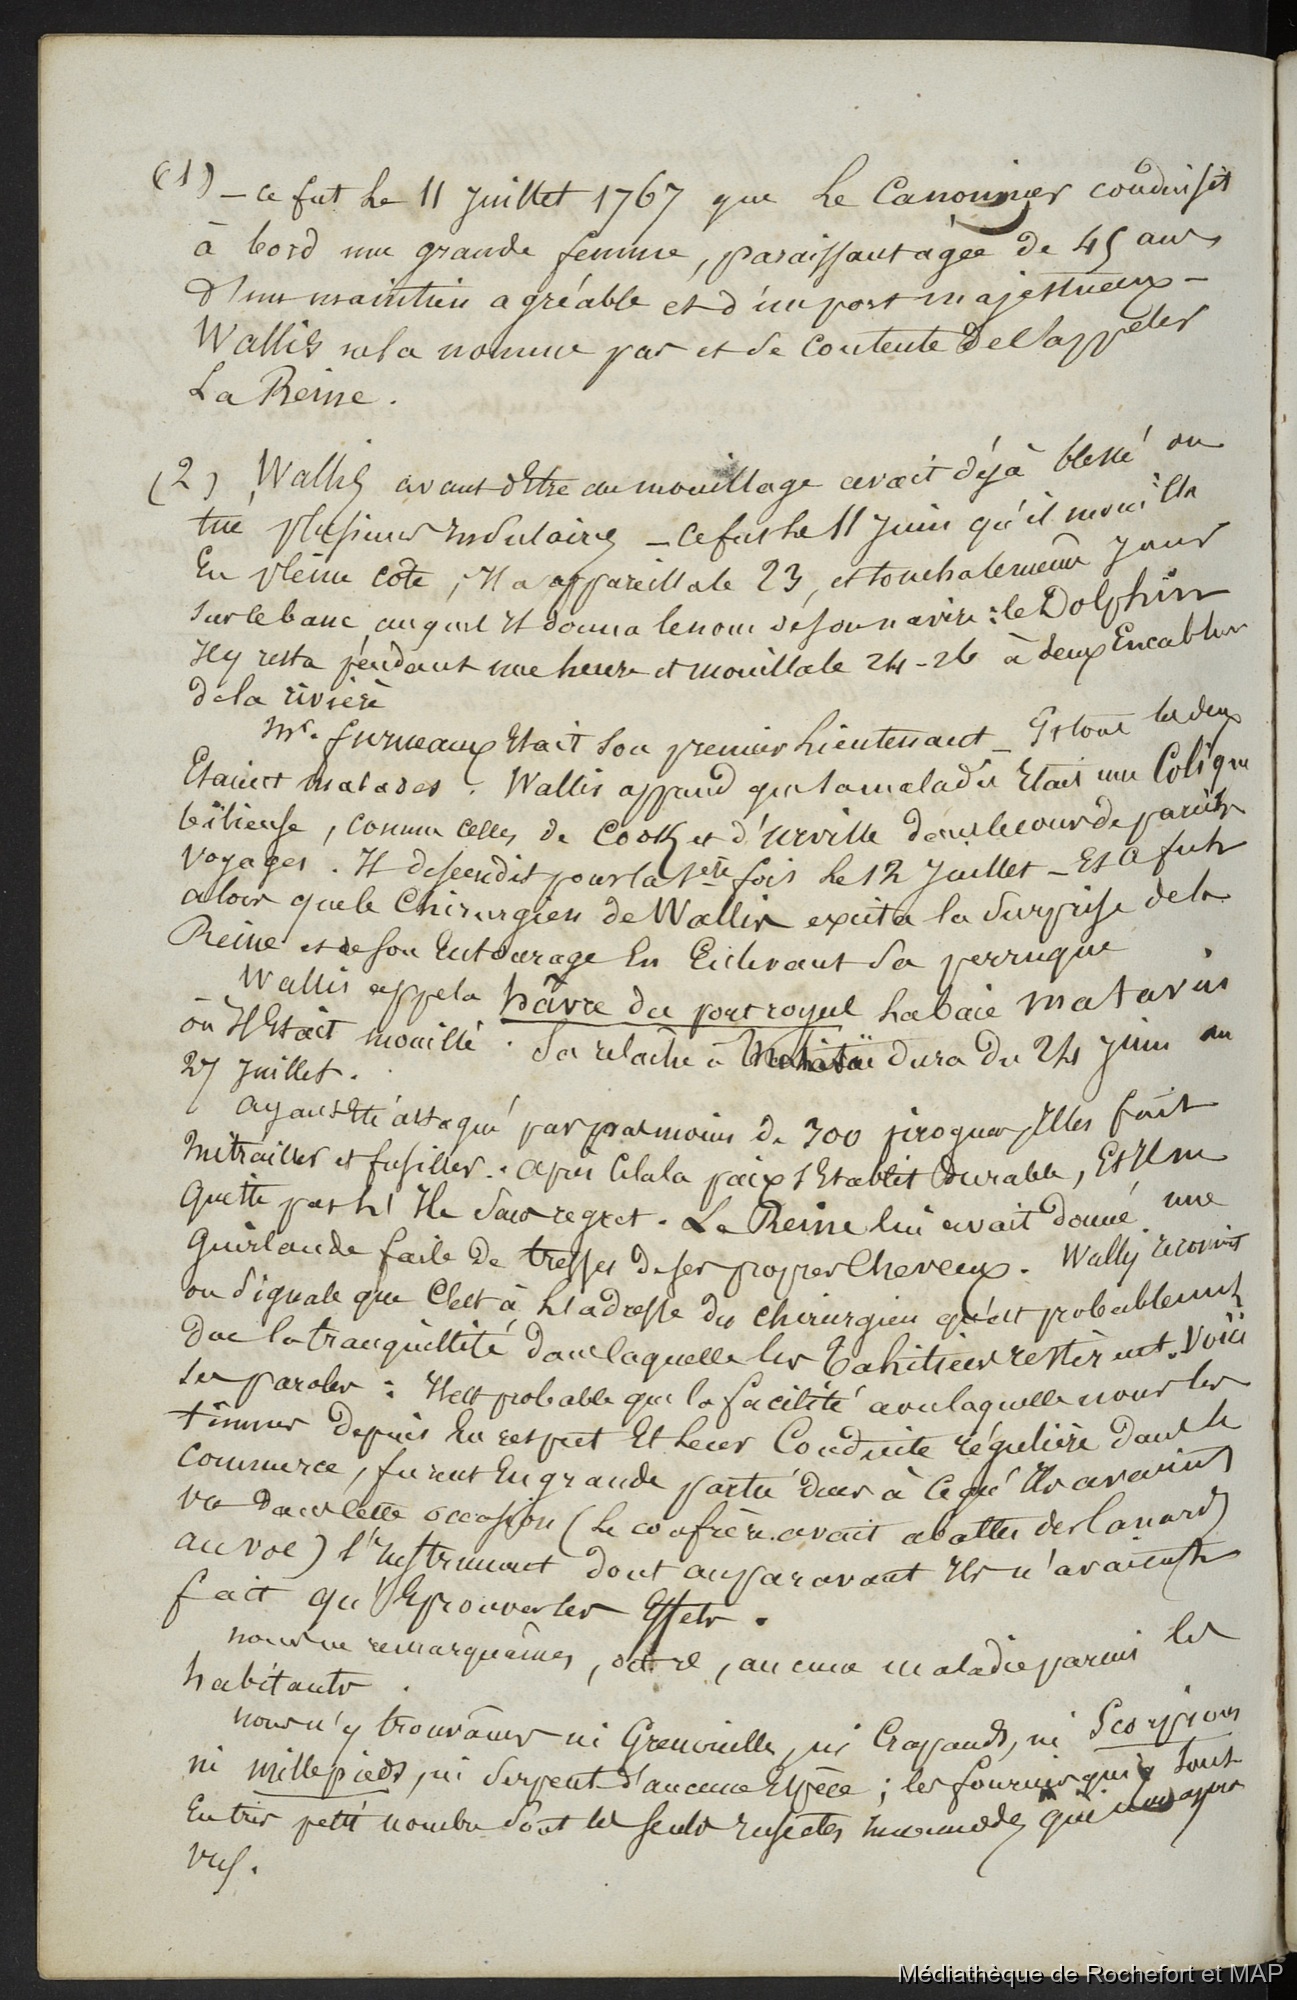 (1) – ce fut le 11 Juillet 1767 que le Canonnier conduisit
à bord une grande femme, paraissant agée de 45 ans
d'un maintien agréable et d'un port majestueux –
Wallis ne la nomme pas et se contente de l'appeler
La Reine.
(2) Wallis avant d'Etre au mouillage avait déjà blessé ou
tué plusieurs Insulaires – ce fut le 11 Juin qu'il mouilla
En pleine cote, il a appareilla le 23, et toucha le même jour
sur le banc auquel Il donna le nom de son navire : le Dolphin
Il y resta pendant une heure et mouilla le 24 - 26 à deux Encablures
de la rivière
Mr. Furneaux Etait son premier Lieutenant – Et tous les deux
Etaient malades. Wallis apprend que sa maladie Etait une Colique
bilieuse, comme celles de Cook et d'Urville dans le cours de pareils
voyages. Il descendit pour la 1ère fois le 12 Juillet – Et ce fut
alors que le Chirurgien de Wallis excita la surprise de la
Reine et de son Entourage En Enlevant sa perruque
Wallis appela hâvre du port royal la baie Matavai
où Il Etait mouillé. Sa relache à dura du 24 Juin au
27 Juillet.
ayant Eté attaqué par pas moins de 300 pirogues, Il les fait
mitrailler et fusiller. après cela la paix s'Etablit durable, Et Il ne
quitte pas l'Ile sans regret. La Reine lui avait donné une
Guirlande faite de tresses de ses propres Cheveux. Wallis reconnait
ou signale que C'est à l'adresse du chirurgien qu'est probablement
due la tranquillité dans laquelle les Tahitiens restèrent. Voici
ses paroles : Il est probable que la facilité avec laquelle nous les
tinmes depuis En respect Et leur Conduite régulière dans le
commerce, furent En grande partie dues à ce qu'Ils avaient
vu dans cette occasion (le confrère avait abattu des Canards
au vol) l'Instrument dont auparavant Ils n'avaient
fait qu'Eprouver les Effets.
nous ne remarquâmes, dit-il, aucune maladie parmi les
habitants.
nous n'y trouvâmes ni Grenouilles, ni Crapauds, ni Scorpions
ni millepieds, ni Serpent d'aucune Espèce ; les fourmis qui y sont
En très petit nombre sont les seuls Insectes incommodes que nous ayons
vus.
Médiathèque de Rochefort et MAP